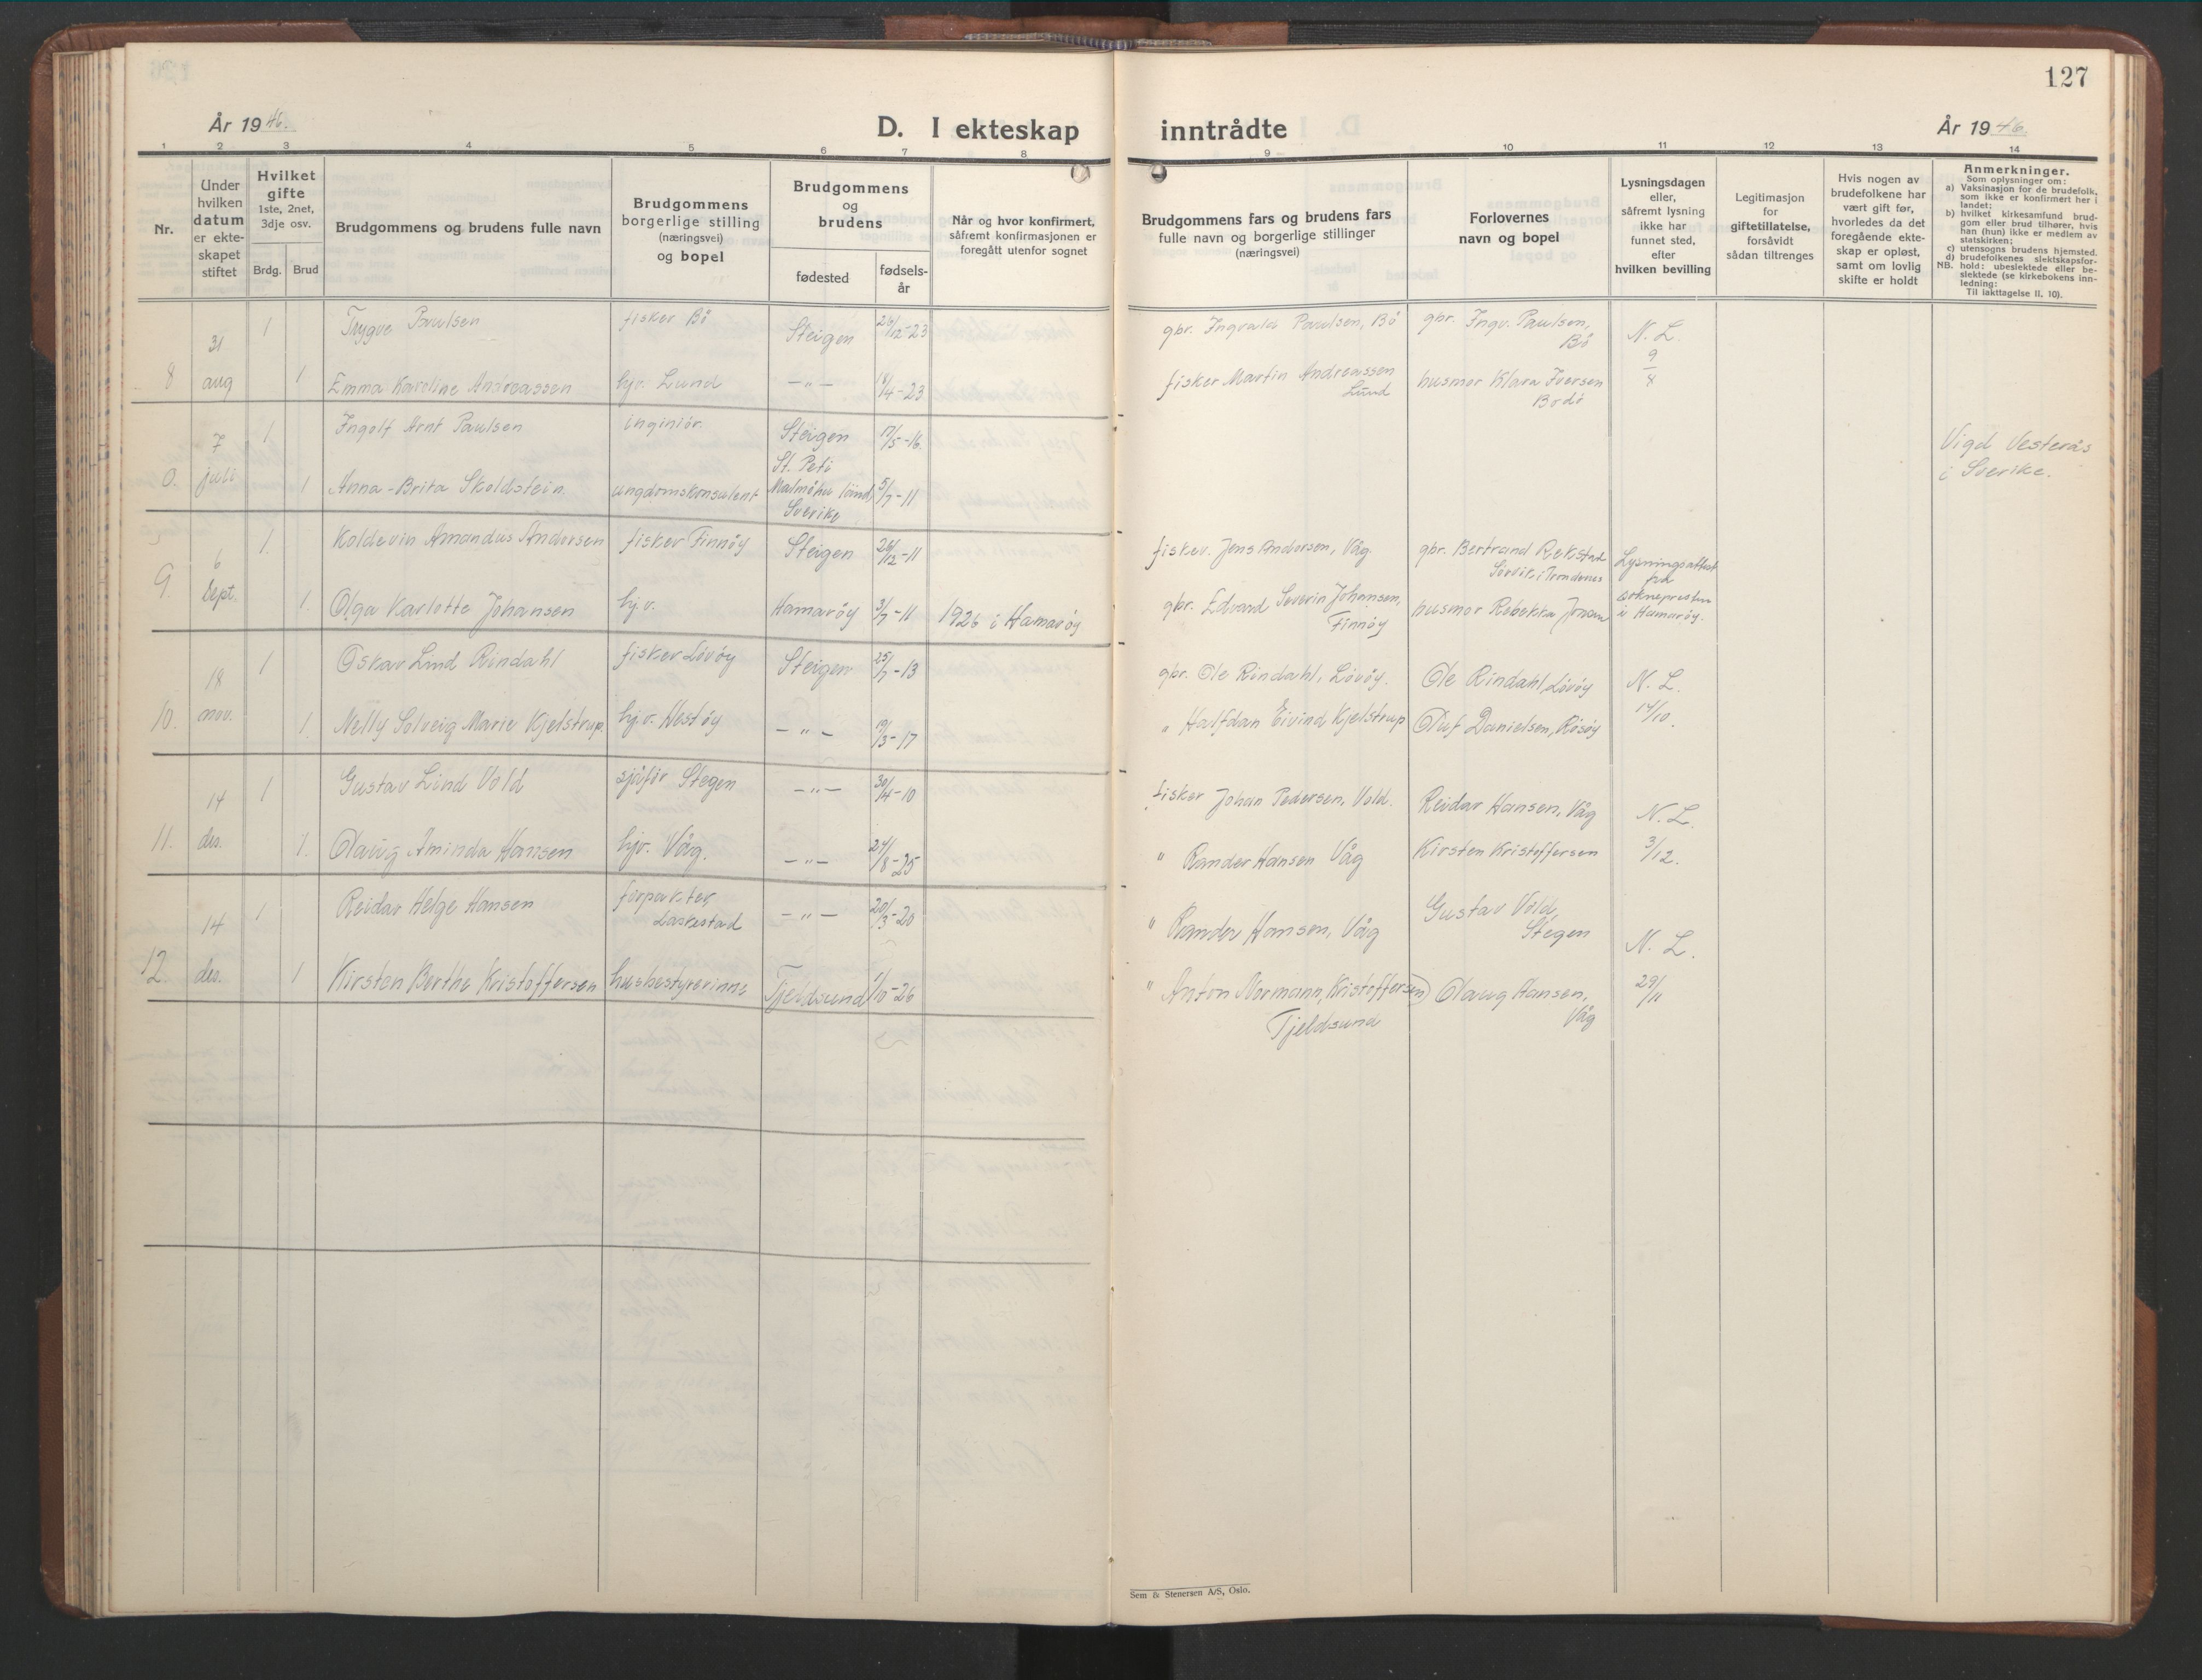 127
År 1946.
D. I ekteskap inntrådte
År 1946.
1 2 3 4 5 6 7 8 9 10 11 12 13 14
Nr.
Under
hvilken
datum
er ekte-
skapet
stiftet
Hvilket
gifte
1ste, 2net,
3dje osv.
Brdg. Brud
Brudgommens og brudens fulle navn
Brudgommens
borgerlige stilling
(næringsvei)
og bopel
Brudgommens
og
brudens
fødested
fødsels-
år
Når og hvor konfirmert,
såfremt konfirmasjonen er
foregått utenfor sognet
Brudgommens fars og brudens fars
fulle navn og borgerlige stillinger
(næringsvei)
Forlovernes
navn og bopel
Lysningsdagen
eller,
såfremt lysning
ikke har
funnet sted,
efter
hvilken bevilling
Legitimasjon
for
giftetillatelse,
forsåvidt
sådan tiltrenges
Hvis nogen av
brudefolkene har
vært gift før,
hvorledes da det
foregående ekte-
skap er opløst,
samt om lovlig
skifte er holdt
Anmerkninger.
Som oplysninger om:
a) Vaksinasjon for de brudefolk,
som ikke er konfirmert her i
landet;
b) hvilket kirkesamfund brud-
gom eller brud tilhører, hvis
han (hun) ikke er medlem av
statskirken;
c) utensogns brudens hjemsted.
d) brudefolkenes slektskapsfor-
NB. hold: ubeslektede eller be-
slektede (se kirkebokens inn-
ledning:
Til iakttagelse II, 10).
31 1 Trygve Paulsen fisker Bö Steigen 26/12-23 gbr. Ingvald Paulsen, Bö gbr. Ingv. Paulsen, Bö N. L.
8 aug 1 Emma Karoline Andreassen hjv. Lund — " — 18/4-23 fisker Martin Andreassen Lund husmor Klara Iversen Bodö 9/8
7 1 Ingolf Arnt Paulsen inginiör Steigen 17/5-16. Vigd Vesterås
0. juli 1 Anna-Brita Skoldstein ungdomskonsulent St. Peti Malmöhu länd Sverike 5/7-11 i Sverike.
6 1. Koldevin Amandus Andersen fisker Finnöy Steigen 26/12-11 fisker. Jens Andersen, Våg. gbr. Bertrand Rekstad Sörvik i Trondenes Lysningsattest fra
9. sept. 1. Olga Karlotte Johansen hj.v. Hamaröy 3/7-11 1926 i Hamaröy gbr. Edvard Severin Johansen, Finnöy husmor Rebekka Jensen soknepresten i Hamaröy.
18 1 Oskar Lind Rindahl fisker Lövöy Steigen 25/7-13 gbr. Ole Rindahl, Lövöy. Ole Rindahl, Lövöy N. L.
10. nov. 1. Nelly Solveig Marie Kjelstrup. hj.v. Hestöy — " — 19/3-17 " Halfdan Eivind Kjelstrup Oluf Danielsen, Rösöy 14/10.
14 1 Gustav Lind Vold sjåför Stegen — " — 30/4-10 fisker Johan Pedersen, Vold. Reidar Hansen, Våg N. L.
11. des. 1. Olaug Aminda Hansen hjv. Våg. — " — 24/8-25 " Rander Hansen Våg Kirsten Kristoffersen 3/12.
14 1 Reidar Helge Hansen forpakter, Laskestad — " — 20/3-20 " Rander Hansen, Våg Gustav Vold, Stegen N. L.
12. des. 1 Kirsten Berthe Kristoffersen husbestyrerinne Tjeldsund 1/10-26 " Anton Normann, Kristoffersen Tjeldsund Olaug Hansen, Våg 29/11
Sem & Stenersen A/S, Oslo.